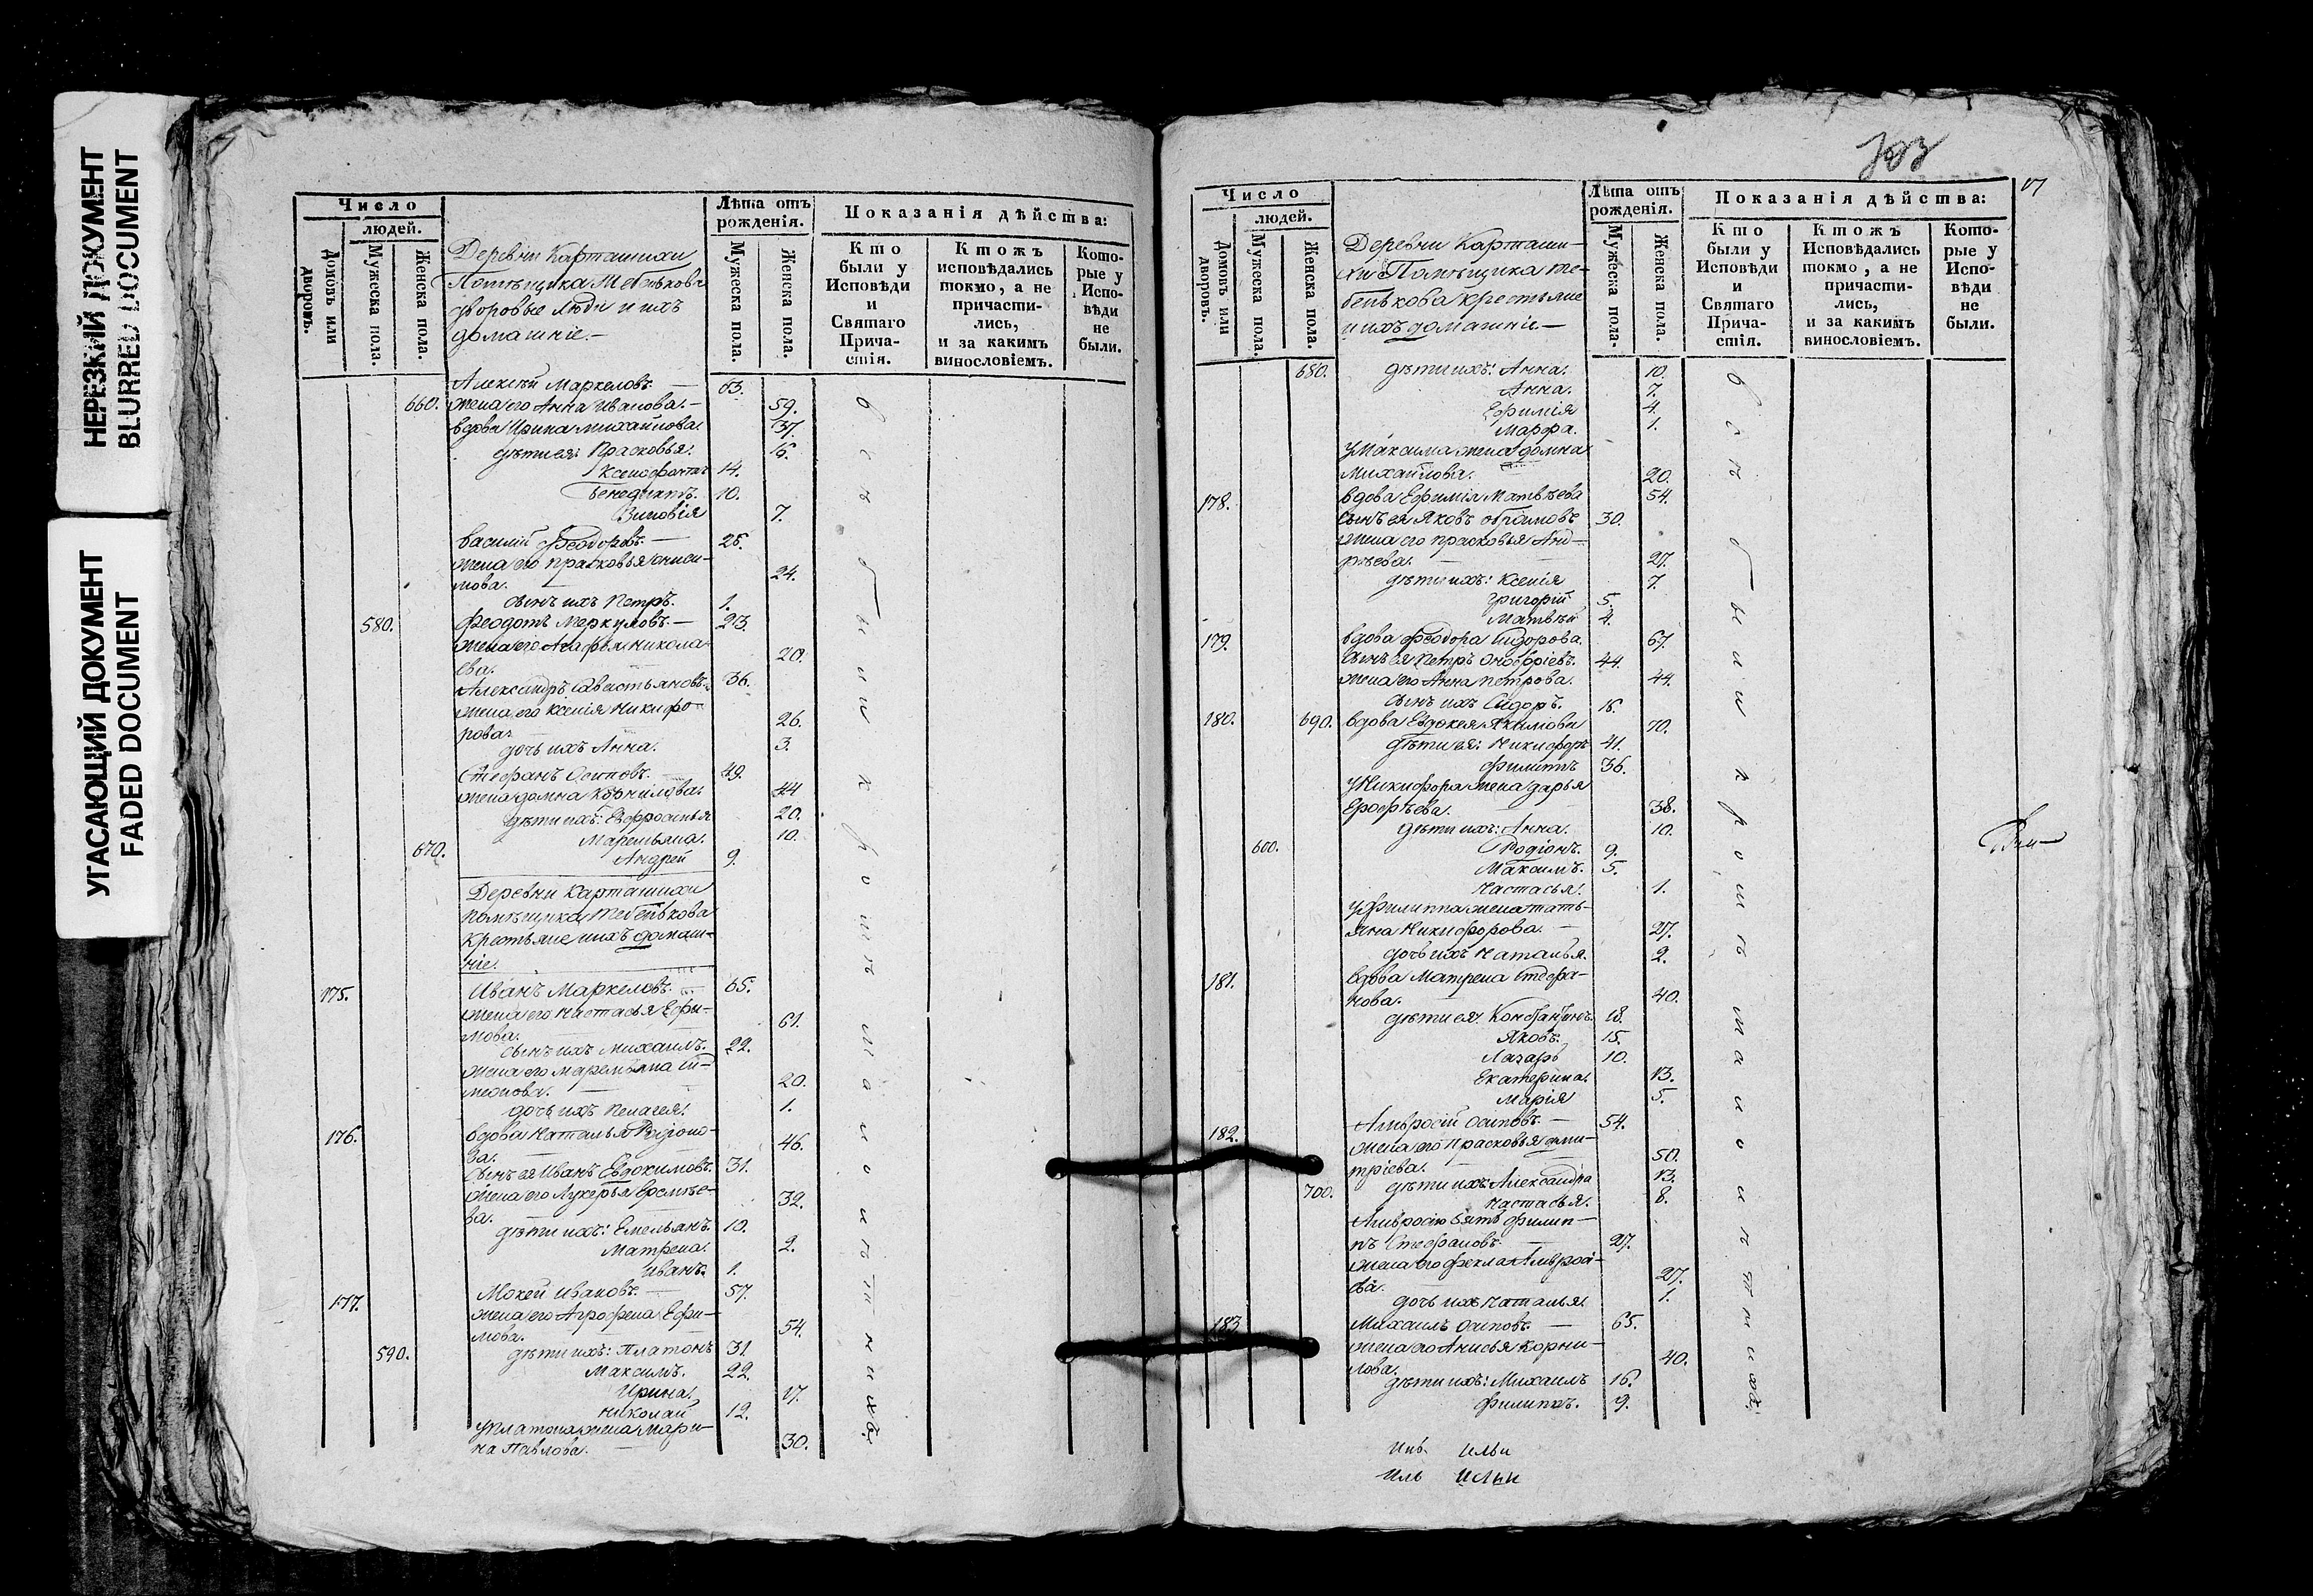 НЕРЕЗКИЙ ДОКУМЕНТ
BLURRED DOCUMENT
УГАСАЮЩИЙ ДОКУМЕНТ
FADED DOCUMENT
Число
людей.
Домовъ или дворовъ.
Мужеска пола.
Женска пола.
Деревни Карташихи
Помѣщика Тебенькова
дворовые люди и ихъ
домашніе.
Лѣта отъ рожденія.
Мужеска пола.
Женска пола.
Показанія дѣйства:
Кто были у Исповѣди и Святаго Прича-стія.
Ктожъ исповѣдались токмо, а не причасти-лись, и за какимъ винословіемъ.
Кото-рые у Испо-вѣди не были.
Алексѣй Маркеловъ. 63.
660. жена его Анна Иванова. 59.
вдова Ирина Михайлова 37.
дѣти ея: Прасковья.
Ксенофонтъ 14.
Венедиктъ. 10.
Зиновія 7.
Василій Феодоровъ.
жена его Прасковья Аниси-
мова. 24.
сынъ ихъ Петръ. 1.
580. Феодотъ Меркуловъ. 23.
жена его Агафья Никола-
ева. 20.
Александръ Савастьяновъ. 36.
жена его Ксенія Никифо-
рова. 26.
дочь ихъ Анна. 3.
Стефанъ Осиповъ. 49.
жена Домна Корнилова. 44
дѣти ихъ: Евфросинья 20.
Маремьяна. 10.
670. Андрей 9.
Деревни Карташихи
помѣщика Тебенькова
крестьяне и ихъ домаш-
ніе.
175. Иванъ Маркеловъ. 65.
жена его Настасья Ефи-
мова. 61.
сынъ ихъ Михаилъ. 22.
жена его Маремьяна Си-
меонова. 20.
дочь ихъ Пелагея. 1.
176. вдова Наталья Родіоно-
ва. 46.
сынъ ея Иванъ Евдокимовъ. 31.
жена его Лукерья Еремѣе-
ва. 32.
дѣти ихъ: Емельянъ. 10.
Матрена. 2.
Иванъ. 1.
177. Мокей Ивановъ. 57.
жена его Агрофена Ефи-
мова. 54.
590. дѣти ихъ: Платонъ 31
Максимъ. 22.
Ирина. 17.
Николай 12.
У Платона жена Мари-
на Павлова. 30.
всѣ были кромѣ малолѣтнихъ
17
Число
людей.
Домовъ или дворовъ.
Мужеска пола.
Женска пола.
Деревни Карташи-
хи Помѣщика Те-
бенькова крестьяне
и ихъ домашніе.
Лѣта отъ рожденія.
Мужеска пола.
Женска пола.
Показанія дѣйства:
Кто были у Исповѣди и Святаго Прича-стія.
Ктожъ Исповѣдались токмо, а не причасти-лись, и за какимъ винословіемъ.
Кото-рые у Испо-вѣди не были.
680. дѣти ихъ: Анна. 10.
Анна. 7.
Ефимія 4.
Марфа. 1.
У Максима жена Домна
Михайлова. 20.
178. вдова Ефимія Матвѣева 54.
сынъ ея Яковъ Абрамовъ 30.
жена его Прасковья Анд-
рѣева. 27.
дѣти ихъ: Ксенія 7.
Григорій 5.
Матвѣй 4.
179. вдова Феодора Сидорова. 67.
сынъ ея Петръ Онофріевъ. 44.
жена его Анна Петрова. 44.
сынъ ихъ Сидоръ.
180. 690. вдова Евдокея Якимова 70.
дѣти ея: Никифоръ 41.
Филиппъ 36.
У Никифора жена Дарья
Ерофѣева. 38.
дѣти ихъ: Анна. 10.
600. Родіонъ. 9.
Максимъ. 5.
Настасья. 1.
У Филиппа жена Тать-
яна Никифорова. 27.
дочь ихъ Наталья. 2.
181. вдова Матрена Стефа-
нова. 40.
дѣти ея: Константинъ. 18.
Яковъ. 15.
Лазарь 10.
Екатерина. 13.
Марія 5.
182. Амвросій Осиповъ. 54.
жена его Прасковья Дми-
тріева. 50.
дѣти ихъ: Александра 13.
700. Настасья. 8.
Амвросію зять Филип-
пъ Стефановъ. 27.
жена его Фекла Амвросі-
ева. 27.
дочь ихъ Наталья. 1.
183. Михаилъ Осиповъ. 65.
жена его Анисья Корни-
лова. 40.
дѣти ихъ: Михаилъ 16.
Филиппъ. 9.
всѣ были кромѣ малолѣтнихъ
Ильи
Иль Ильи